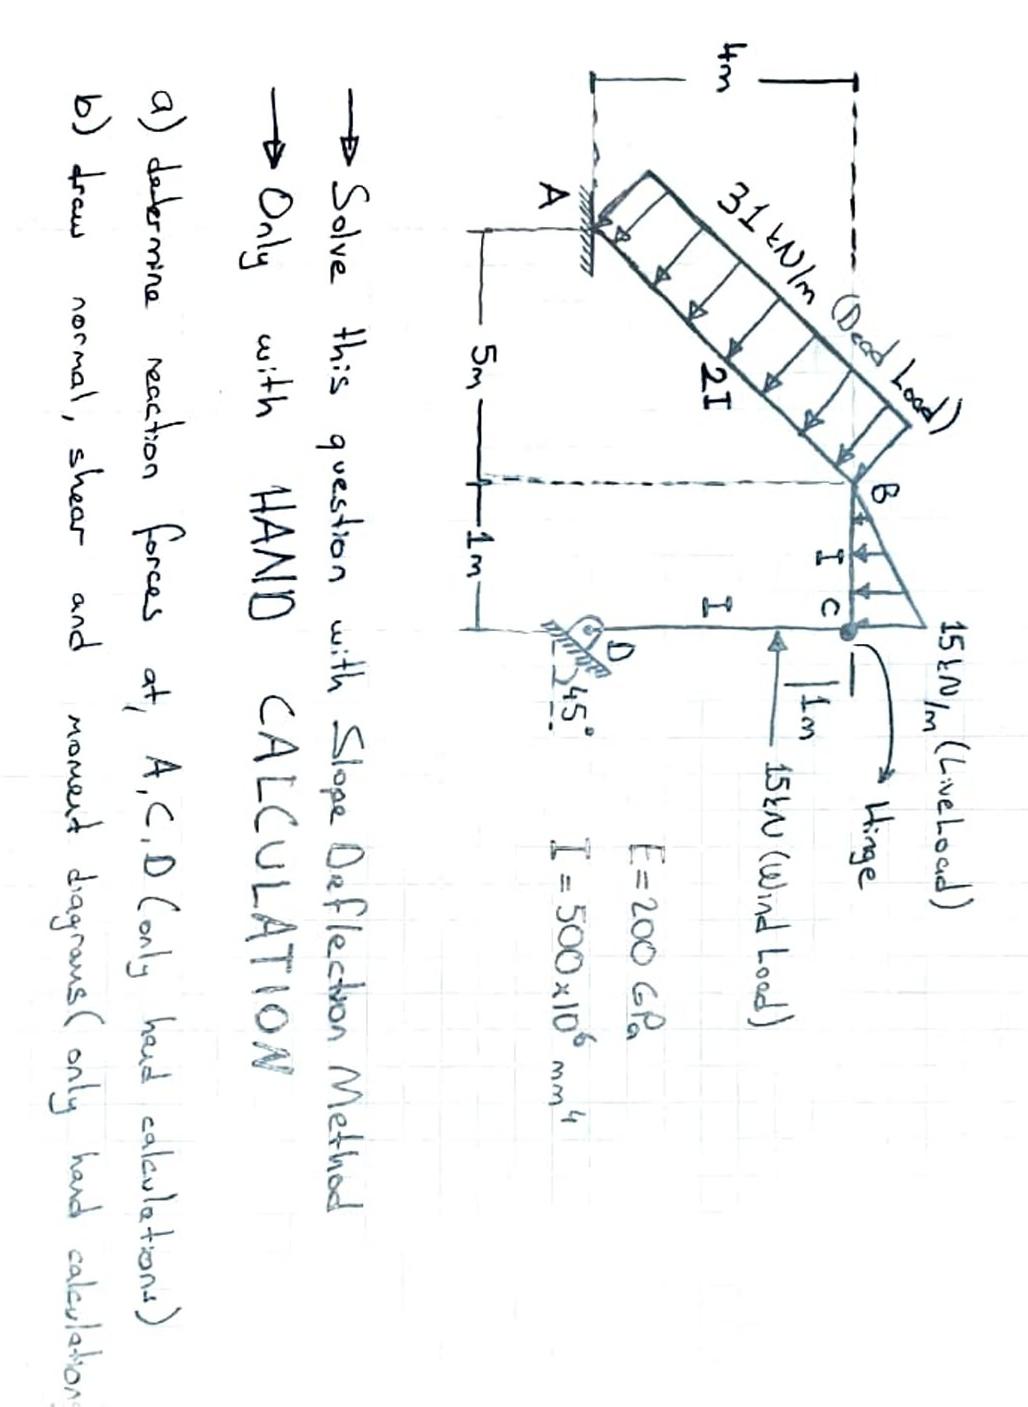 4m
31 kN/m (Dead Load)
15 kN/m (Live Load)
B
C
Hinge
I
1m
15kN (Wind Load)
2I
I
A
D
45°
E=200 GPa
I = 500x10⁶ mm⁴
5m
1m
→ Solve this question with Slope Deflection Method
→ Only with HAND CALCULATION
a) determine reaction forces at, A, C, D (only hand calculations)
b) draw normal, shear and moment diagrams (only hand calculation